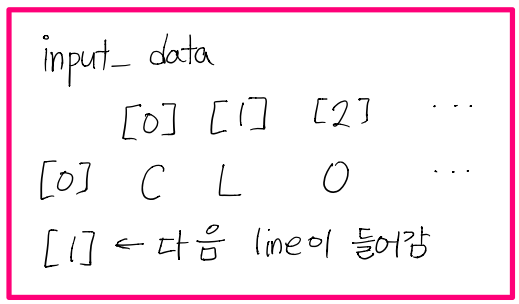 input_ data
[0] [1] [2] ...
[0] C L O ...
[1] ← 다음 line이 들어감